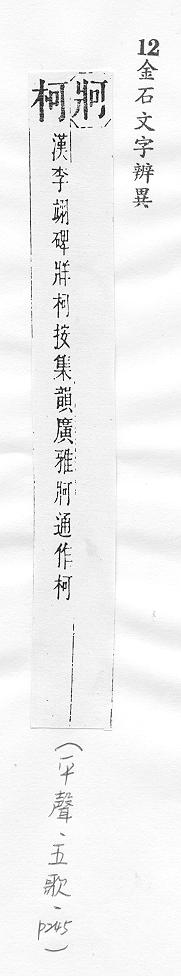 12金石文字辨異
牁柯
漢李翊碑牂柯按集韻廣雅牁通作柯
(平聲、五歌、P245)